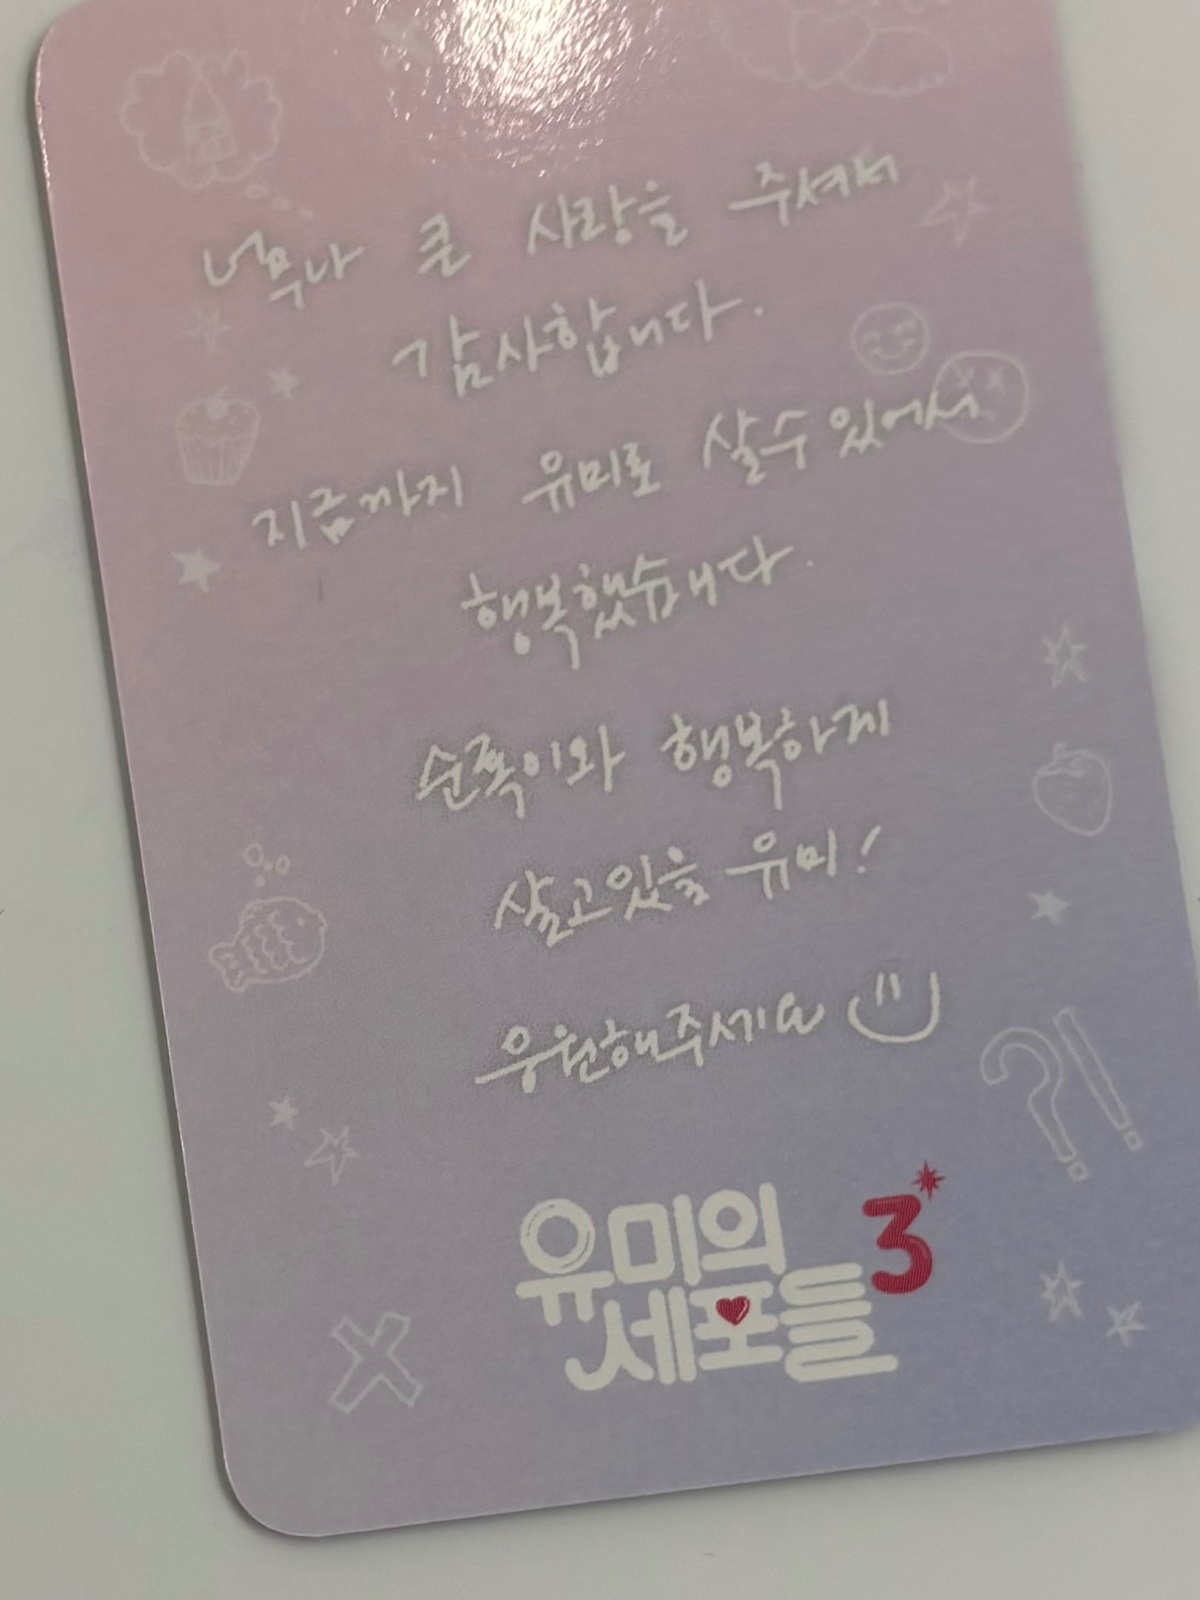 너무나 큰 사랑을 주셔서
감사합니다.
지금까지 유미로 살수있어서
행복했습니다.
순록이와 행복하게
살고있을 유미!
응원해주세요
?!
유미의
세포들 3